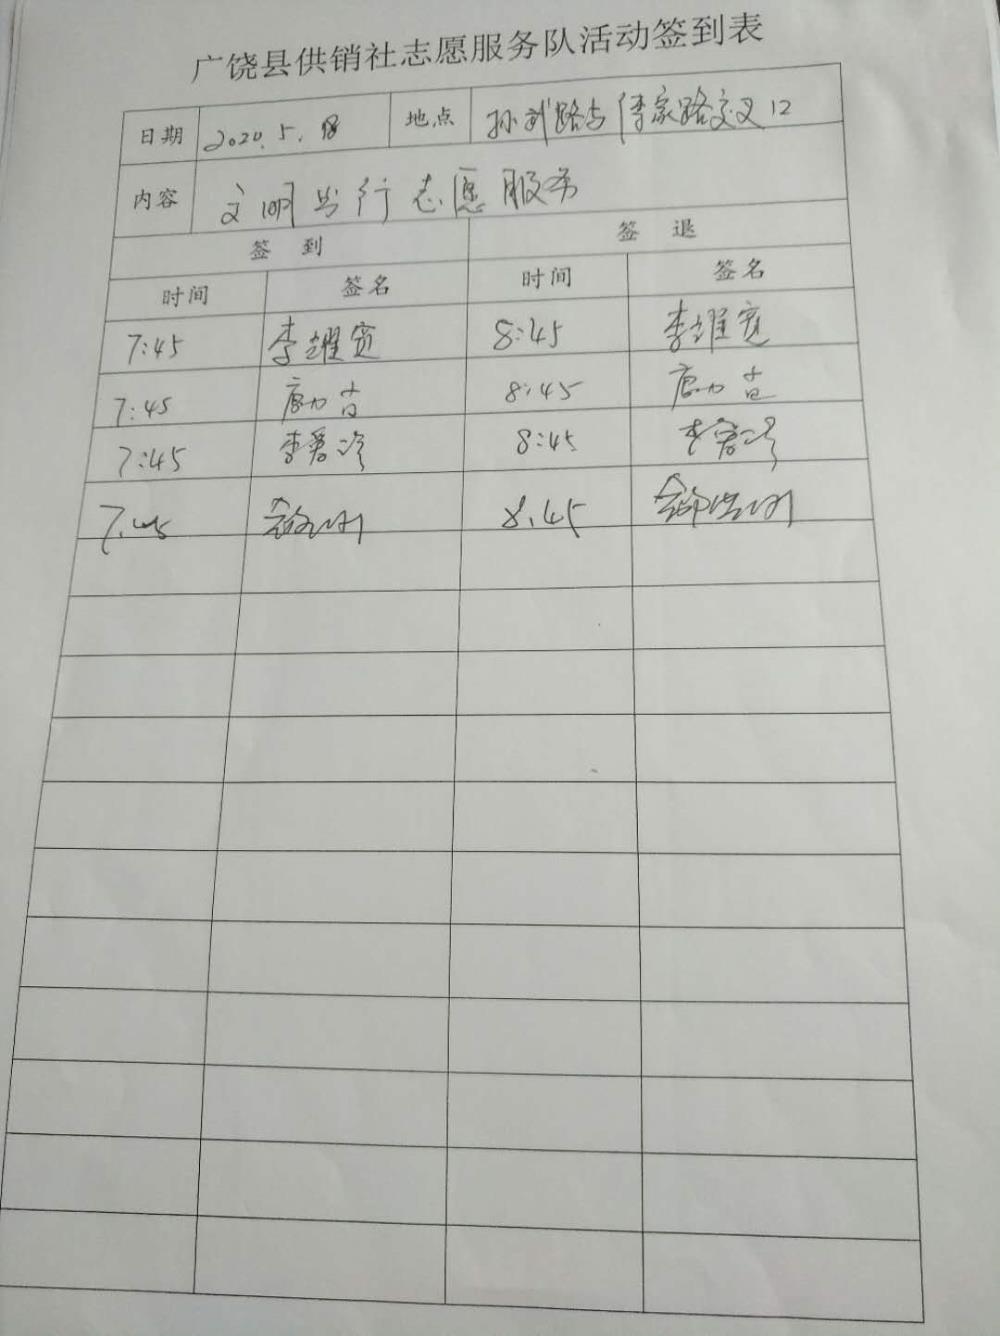 广饶县供销社志愿服务队活动签到表
日期 2020.5.18 地点 孙武路与傅家路交叉口
内容 文明出行志愿服务
签 到 签 退
时间 签名 时间 签名
7:45 李耀宽 8:45 李耀宽
7:45 8:45
7:45 李 8:45 李
7.45 8.45